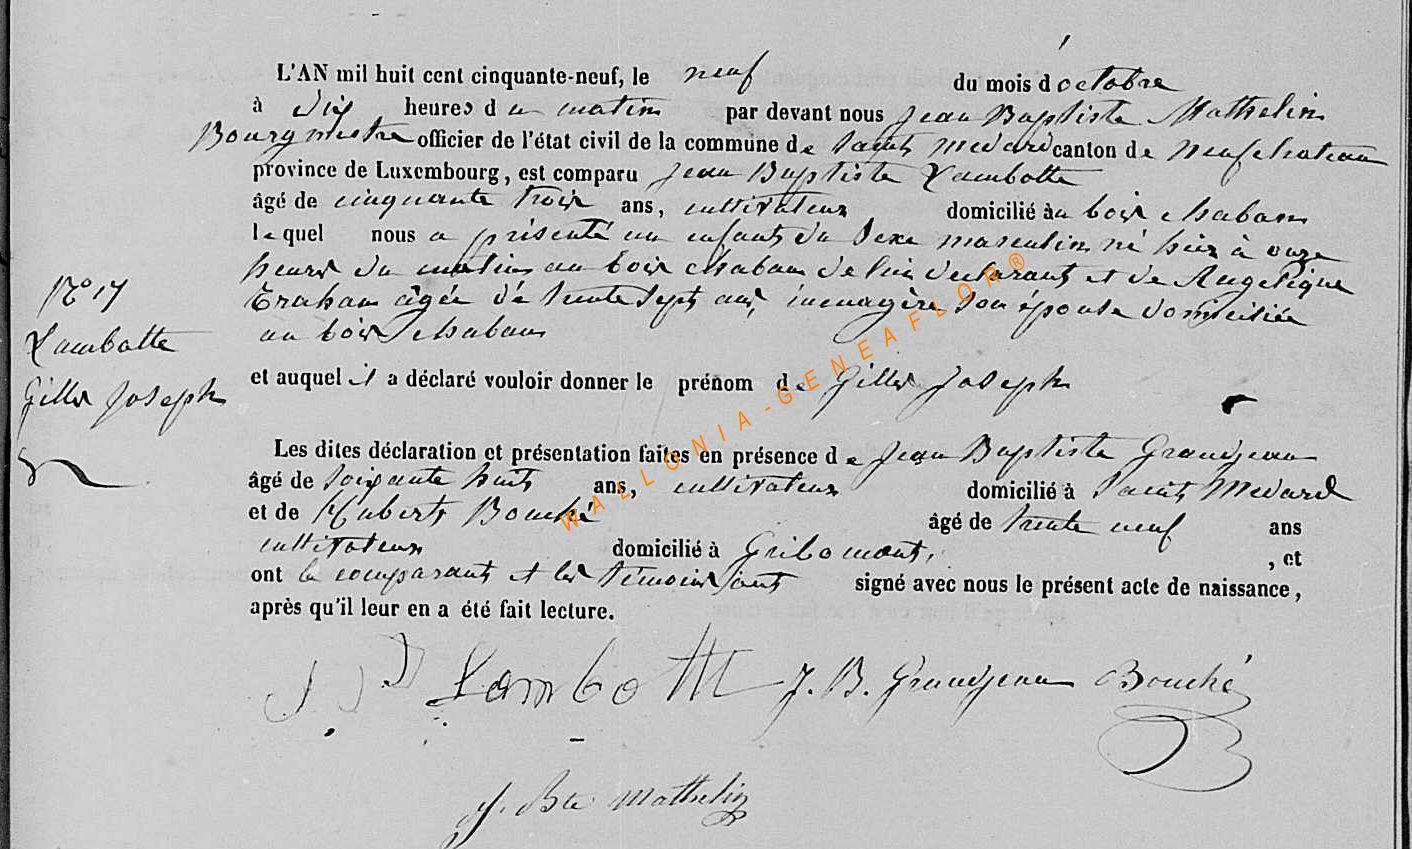 L'AN mil huit cent cinquante-neuf, le neuf du mois d'octobre
à dix heures du matin par devant nous Jean Baptiste Mathelin
Bourgmestre officier de l'état civil de la commune de Saint Medard canton de Neufchateau
province de Luxembourg, est comparu Jean Baptiste Lambotte
âgé de cinquante trois ans, cultivateur domicilié au bois chabam
lequel nous a présenté un enfant du sexe masculin né hier à onze
heures du matin au bois chabam de lui declarant et de Angelique
âgée de trente sept ans, menagère son épouse domiciliée
au bois chabam
N° 17
Lambotte
Gilles Joseph
et auquel il a déclaré vouloir donner le prénom de Gilles Joseph
Les dites déclaration et présentation faites en présence de Jean Baptiste Grandjean
âgé de soixante huit ans, cultivateur domicilié à Saint Medard
et de Hubert Bouché âgé de trente neuf ans
cultivateur domicilié à Gribomont, , et
ont le comparant et les témoins sont signé avec nous le présent acte de naissance,
après qu'il leur en a été fait lecture.
J J Lambott J. B. Grandjean Bouché
J. Bte Mathelin
WALLONIA-GENEAFLOR®